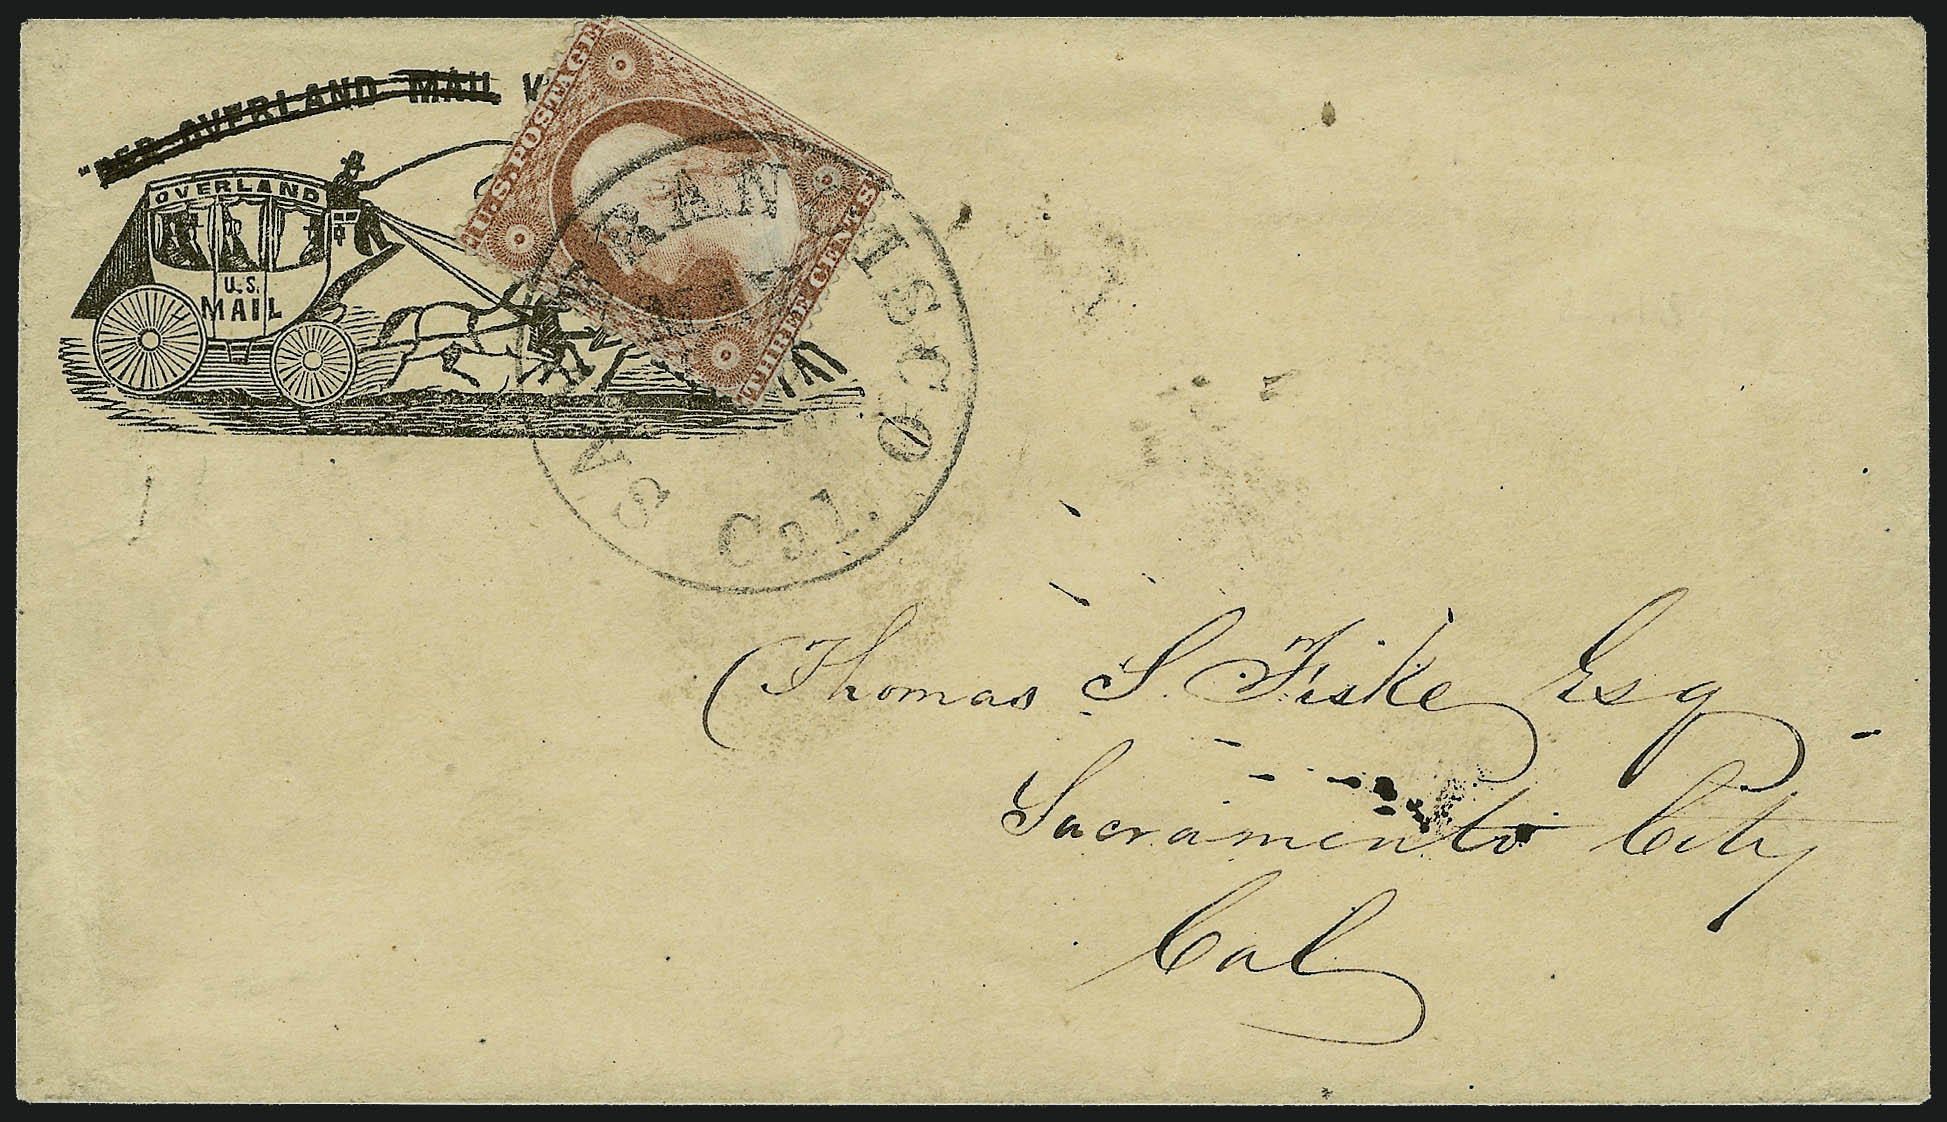 "PER OVERLAND MAIL
OVERLAND
U.S.
MAIL
U.S. POSTAGE
THREE CENTS
SAN FRANCISCO
Cal.
Thomas S. Fiske Esq
Sacramento City
Cal